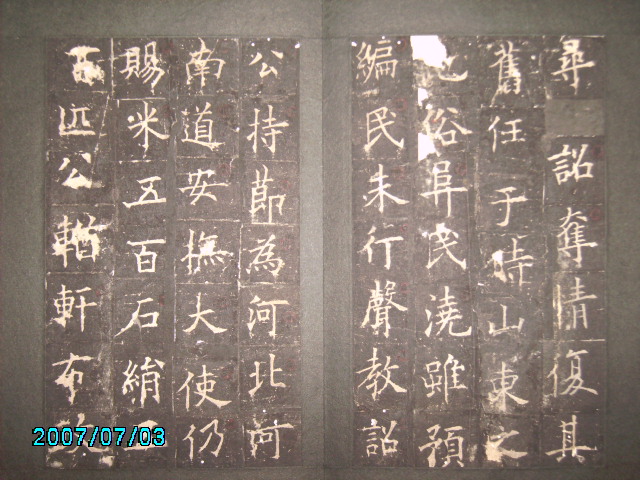 尋詔奪情復其
舊任于時山東之
地俗異民澆雖預
編民未行聲教詔
公持節為河北河
南道安撫大使仍
賜米五百石絹五
百匹公輶軒布
2007/07/03